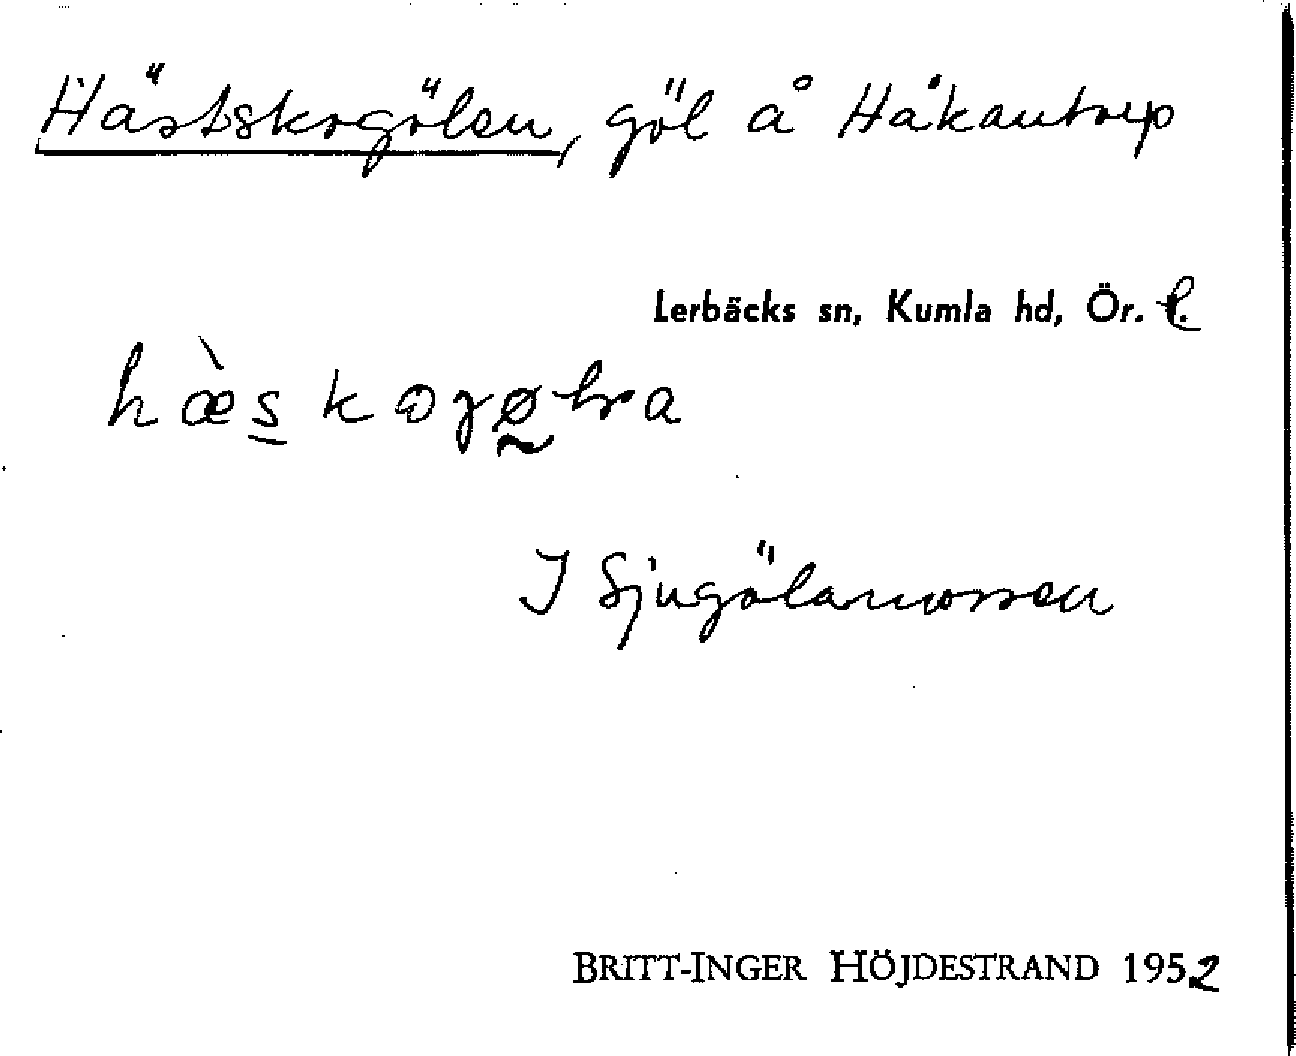 Hästskogölen, göl å Håkantorp
Lerbäcks sn, Kumla hd, Ör. l.
I Sjugölamossen
BRITT-INGER HÖJDESTRAND 1952